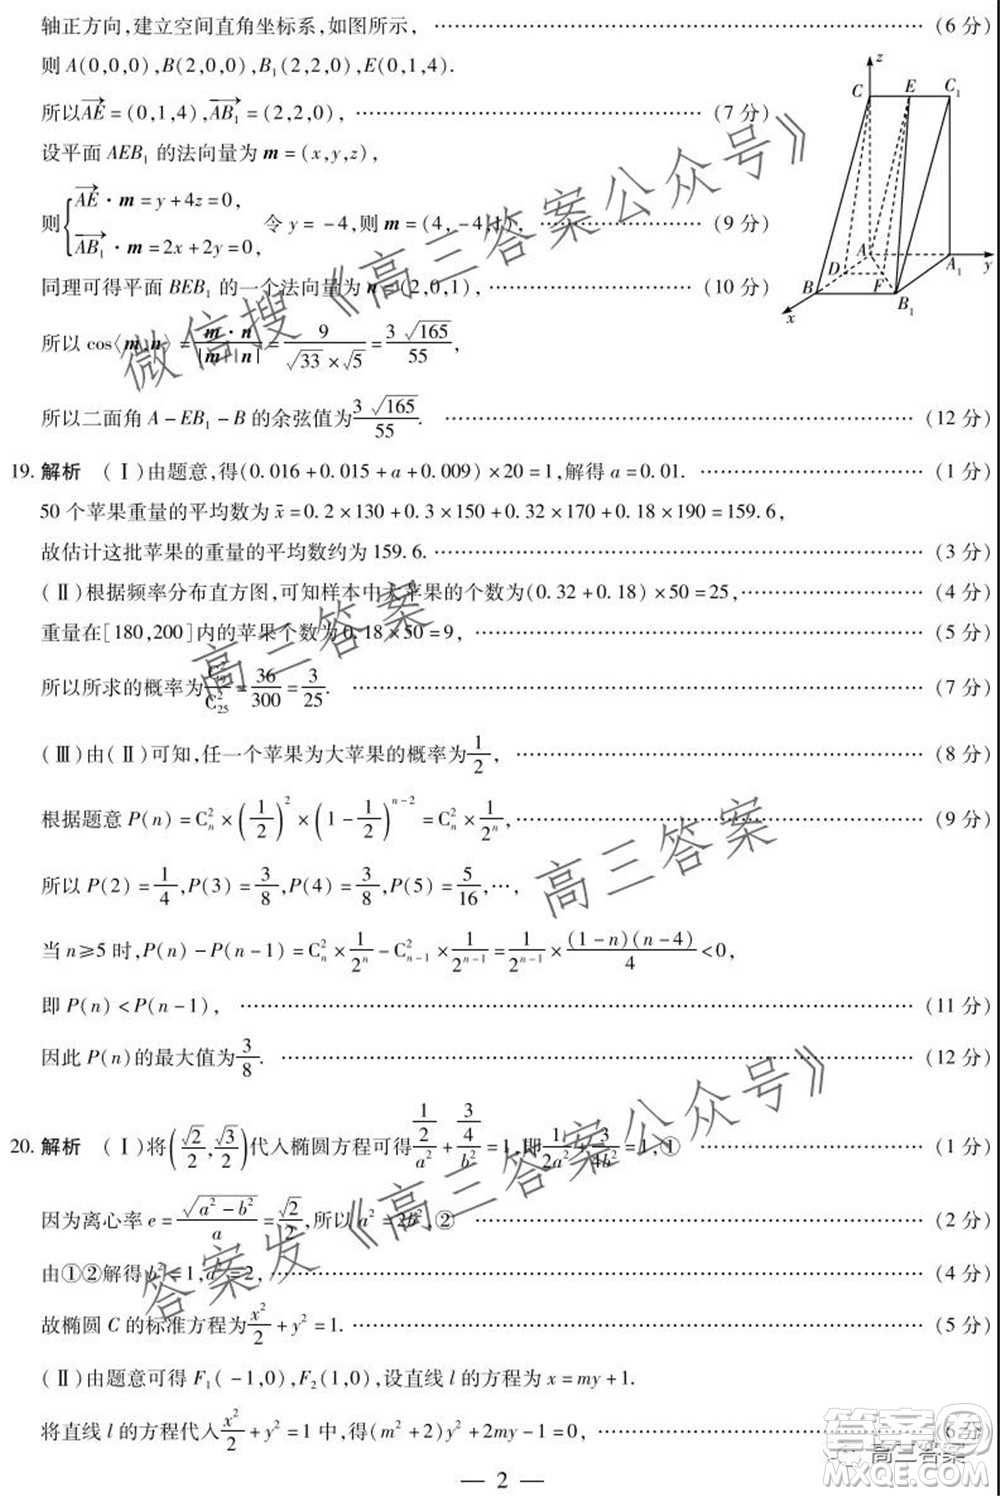 轴正方向,建立空间直角坐标系,如图所示, …… (6 分)
则 A(0,0,0),B(2,0,0),B₁(2,2,0),E(0,1,4).
所以 AE→ = (0,1,4), AB₁→ = (2,2,0), …… (7 分)
设平面 AEB₁ 的法向量为 m = (x,y,z),
则 { AE→ · m = y + 4z = 0, AB₁→ · m = 2x + 2y = 0, 令 y = −4,则 m = (4, −4,1), …… (9 分)
同理可得平面 BEB₁ 的一个法向量为 n = (2,0,1), …… (10 分)
所以 cos⟨m,n⟩ = m · n / |m| |n| = 9 / (√33 × √5) = 3√165 / 55,
所以二面角 A − EB₁ − B 的余弦值为 3√165 / 55. …… (12 分)
z
C E C₁
A A₁ y
D F
B B₁
x
19. 解析 (Ⅰ)由题意,得(0.016 + 0.015 + a + 0.009) × 20 = 1,解得 a = 0.01. …… (1 分)
50 个苹果重量的平均数为 x̄ = 0.2 × 130 + 0.3 × 150 + 0.32 × 170 + 0.18 × 190 = 159.6,
故估计这批苹果的重量的平均数约为 159.6. …… (3 分)
(Ⅱ)根据频率分布直方图,可知样本中大苹果的个数为(0.32 + 0.18) × 50 = 25, …… (4 分)
重量在[180,200]内的苹果个数为 0.18 × 50 = 9, …… (5 分)
所以所求的概率为 C₉² / C₂₅² = 36/300 = 3/25. …… (7 分)
(Ⅲ)由(Ⅱ)可知,任一个苹果为大苹果的概率为 1/2, …… (8 分)
根据题意 P(n) = Cₙ² × (1/2)² × (1 − 1/2)ⁿ⁻² = Cₙ² × 1/2ⁿ, …… (9 分)
所以 P(2) = 1/4,P(3) = 3/8,P(4) = 3/8,P(5) = 5/16,…,
当 n ≥ 5 时,P(n) − P(n − 1) = Cₙ² × 1/2ⁿ − Cₙ₋₁² × 1/2ⁿ⁻¹ = 1/2ⁿ⁻¹ × (1 − n)(n − 4)/4 < 0,
即 P(n) < P(n − 1), …… (11 分)
因此 P(n)的最大值为 3/8. …… (12 分)
20. 解析 (Ⅰ)将(√2/2, √3/2)代入椭圆方程可得 (1/2)/a² + (3/4)/b² = 1,即 1/2a² + 3/4b² = 1,① …… (1 分)
因为离心率 e = √(a² − b²)/a = √2/2,所以 a² = 2b².② …… (2 分)
由①②解得 b² = 1,a² = 2, …… (4 分)
故椭圆 C 的标准方程为 x²/2 + y² = 1. …… (5 分)
(Ⅱ)由题意可得 F₁(−1,0),F₂(1,0),设直线 l 的方程为 x = my + 1.
将直线 l 的方程代入 x²/2 + y² = 1 中,得(m² + 2)y² + 2my − 1 = 0, …… (6 分)
— 2 —
微信搜《高三答案公众号》
高三答案
高三答案
答案发《高三答案公众号》
高三答案
答案圈
MXQE.COM